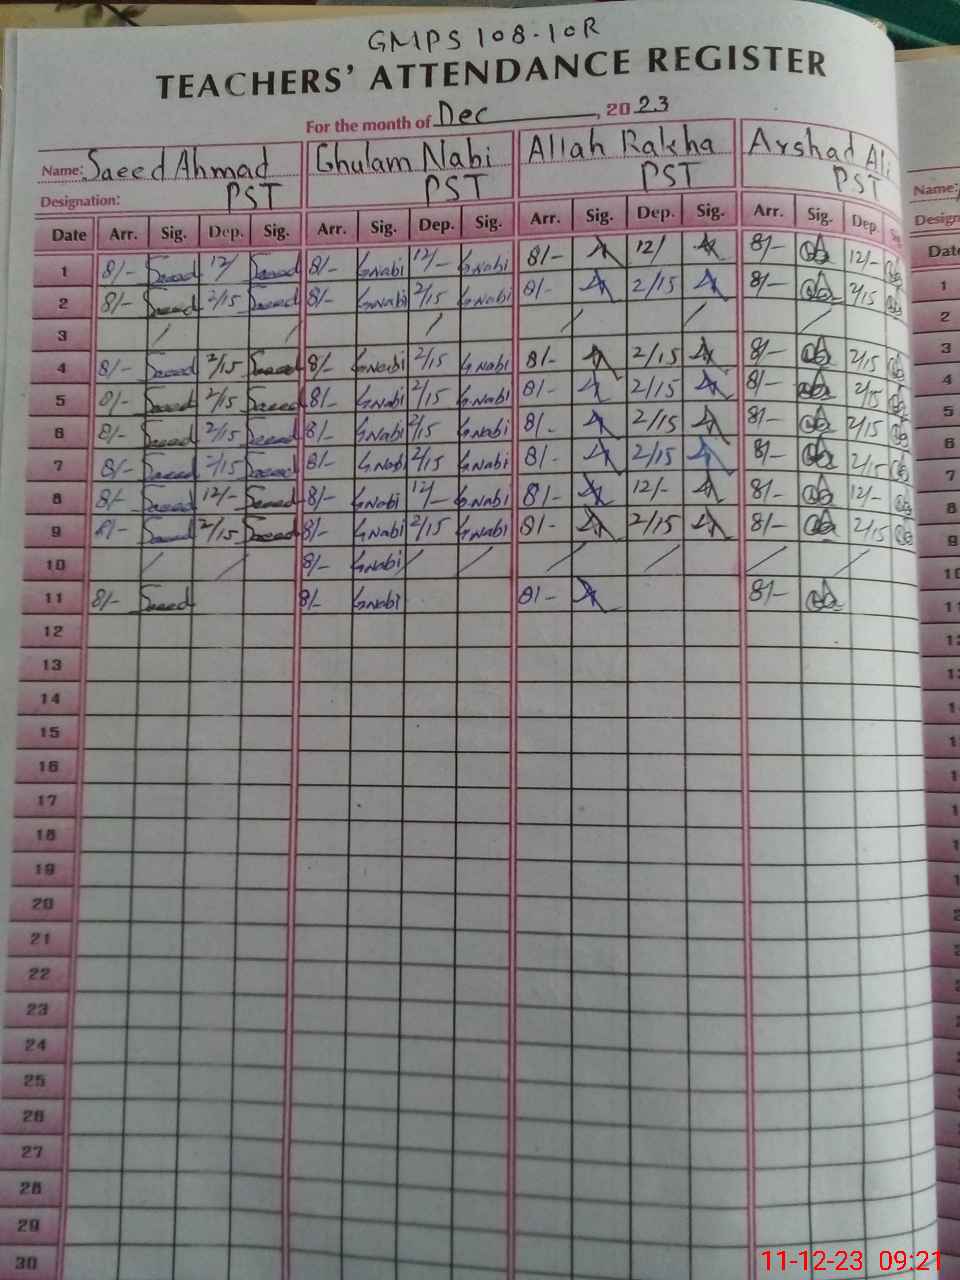 GMPS 108-10R
TEACHERS' ATTENDANCE REGISTER
For the month of Dec, 2023
Name: Saeed Ahmad Ghulam Nabi Allah Rakha Arshad Ali Name:
Designation: PST PST PST PST
Date Arr. Sig. Dep. Sig. Arr. Sig. Dep. Sig. Arr. Sig. Dep. Sig. Arr. Sig. Dep.
1 8/- Saeed 12/ Saeed 8/- GNabi 12/- GNabi 8/- 12/ 8/- 12/- 1
2 8/- Saeed 2/15 Saeed 8/- GNabi 2/15 GNabi 8/- 2/15 8/- 2/15 2
3 / / / / / / 3
4 8/- Saeed 2/15 Saeed 8/- GNabi 2/15 GNabi 8/- 2/15 8/- 2/15 4
5 8/- Saeed 2/15 Saeed 8/- GNabi 2/15 GNabi 8/- 2/15 8/- 2/15 5
6 8/- Saeed 2/15 Saeed 8/- GNabi 2/15 GNabi 8/- 2/15 8/- 2/15 6
7 8/- Saeed 2/15 Saeed 8/- GNabi 2/15 GNabi 8/- 2/15 8/- 2/15 7
8 8/- Saeed 12/- Saeed 8/- GNabi 12/- GNabi 8/- 12/- 8/- 12/- 8
9 8/- Saeed 2/15 Saeed 8/- GNabi 2/15 GNabi 8/- 2/15 8/- 2/15 9
10 / / 8/- GNabi / / / / / / 10
11 8/- Saeed 8/- GNabi 8/- 8/-
12
13
14
15
16
17
18
19
20
21
22
23
24
25
26
27
28
29
30
11-12-23 09:21